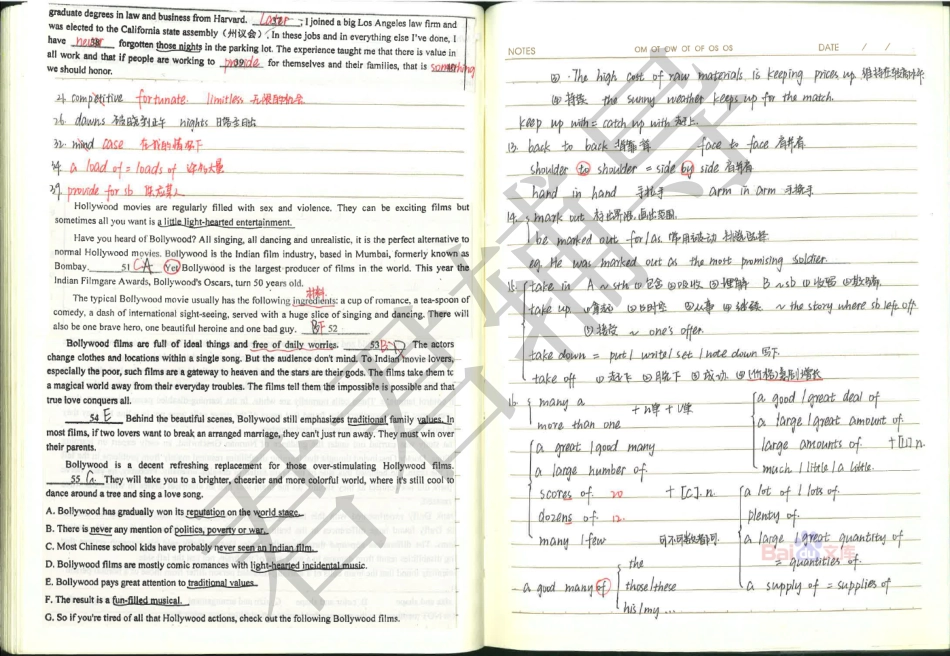 graduate degrees in law and business from Harvard. Later, I joined a big Los Angeles law firm and
was elected to the California state assembly (州议会). In these jobs and in everything else I've done, I
have never forgotten those nights in the parking lot. The experience taught me that there is value in
all work and that if people are working to provide for themselves and their families, that is something
we should honor.
21. competitive fortunate. limitless 无限的机会
26. dawns 破晓到正午 nights 日落至日出
32. mind case 在我的情况下
34. a load of = loads of 许多大量
39. provide for sb 供应某人
Hollywood movies are regularly filled with sex and violence. They can be exciting films but
sometimes all you want is a little light-hearted entertainment.
Have you heard of Bollywood? All singing, all dancing and unrealistic, it is the perfect alternative to
normal Hollywood movies. Bollywood is the Indian film industry, based in Mumbai, formerly known as
Bombay. 51 C A Yet Bollywood is the largest producer of films in the world. This year the
Indian Filmgare Awards, Bollywood's Oscars, turn 50 years old.
材料
The typical Bollywood movie usually has the following ingredients: a cup of romance, a tea-spoon of
comedy, a dash of international sight-seeing, served with a huge slice of singing and dancing. There will
also be one brave hero, one beautiful heroine and one bad guy. B F 52
Bollywood films are full of ideal things and free of daily worries. 53 B D The actors
change clothes and locations within a single song. But the audience don't mind. To Indian movie lovers,
especially the poor, such films are a gateway to heaven and the stars are their gods. The films take them to
a magical world away from their everyday troubles. The films tell them the impossible is possible and that
true love conquers all.
54 E Behind the beautiful scenes, Bollywood still emphasizes traditional family values. In
most films, if two lovers want to break an arranged marriage, they can't just run away. They must win over
their parents.
Bollywood is a decent refreshing replacement for those over-stimulating Hollywood films.
55 G. They will take you to a brighter, cheerier and more colorful world, where it's still cool to
dance around a tree and sing a love song.
A. Bollywood has gradually won its reputation on the world stage.
B. There is never any mention of politics, poverty or war.
C. Most Chinese school kids have probably never seen an Indian film.
D. Bollywood films are mostly comic romances with light-hearted incidental music.
E. Bollywood pays great attention to traditional values.
F. The result is a fun-filled musical.
G. So if you're tired of all that Hollywood actions, check out the following Bollywood films.
NOTES OM OT OW OT OF OS OS DATE / /
④ · The high cost of raw materials is keeping prices up. 维持在较高水平
⑤ 持续 the sunny weather keeps up for the match.
keep up with = catch up with 赶上.
13. back to back 背靠背 face to face 肩并肩
shoulder to shoulder = side by side 肩并肩
hand in hand 手拉手 arm in arm 手挽手
14. mark out 标出界限,画出范围.
be marked out for/as 常用被动
eg. He was marked out as the most promising soldier.
15. take in A ~ sth ①包含 ②吸收 ③理解 B ~ sb ①收留 ②欺骗.
take up ①拿起 ②占时空 ③从事 ④继续 ~ the story where sb left off.
⑤接受 ~ one's offer.
take down = put / write / set / note down 写下.
take off ①起飞 ②脱下 ③成功 ④(价格)急剧增长
16. many a + n单 + V单 a good / great deal of
more than one a large / great amount of
a great / good many large amounts of + [U] n.
a large number of. much / little / a little.
scores of. 20 + [c]. n. a lot of / lots of.
dozens of. 12. plenty of.
many / few 可不可数都可. a large / great quantity of
the = quantities of.
a good many of those/these a supply of = supplies of
his/my ...
君君辅导
Baidu文库